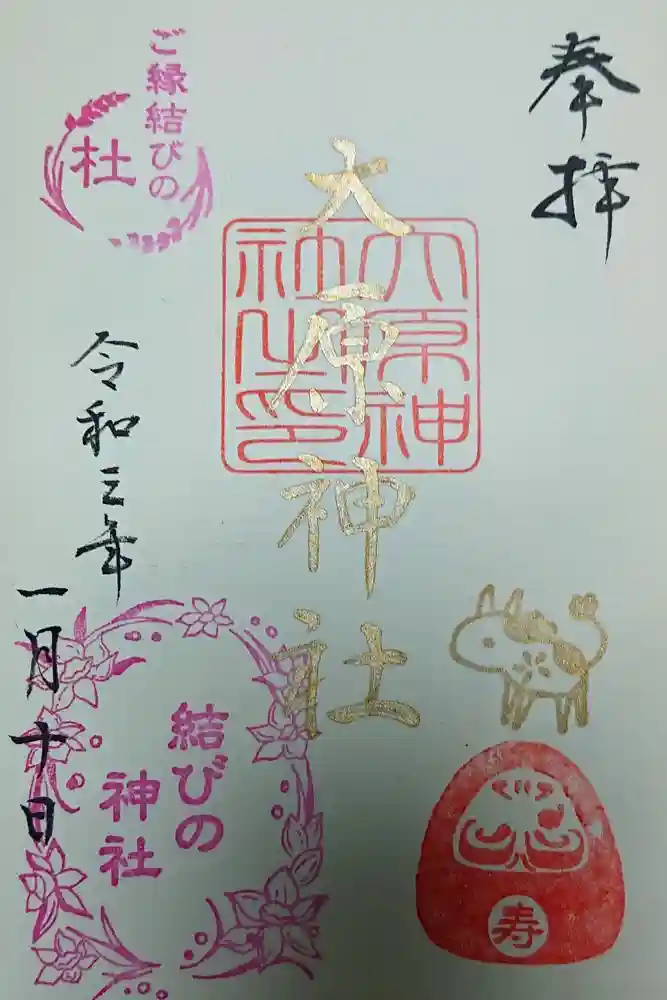 奉拝
大原神社
大原神社之印
ご縁結びの
杜
令和三年
一月十日
結びの
神社
寿